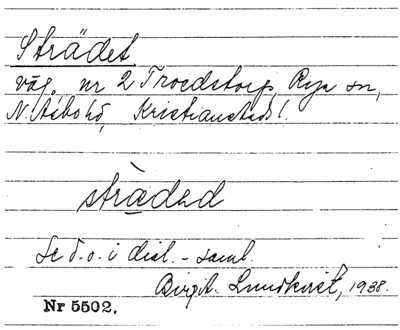 Strädet
väg, nr 2 Troedstorp, Rya sn,
N. Åsbo hd, Kristianstads l.
sträded
Se d.o. i dial.-saml.
Birgit Lundkvist, 1938.
Nr 5502.